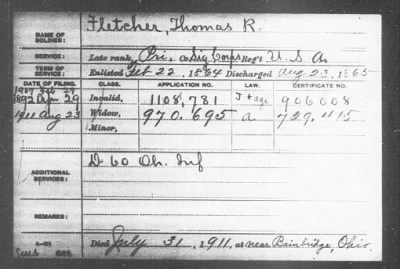 NAME OF SOLDIER: Fletcher, Thomas R.
SERVICE: Late rank, Pri, Co Sig Corps Reg't U. S. A.
TERM OF SERVICE: Enlisted Oct 22, 1864 Discharged Aug 23, 1865
CLASS. APPLICATION NO. LAW. CERTIFICATE NO.
1907 Feb 27
1892 Apr 29 Invalid, 1108,781 J + age 906008
1911 Aug 23 Widow, 970.695 a 729.115
Minor,
ADDITIONAL SERVICES: D 60 Oh. Inf
REMARKS:
Died July 31, 1911, at near Bainbridge, Ohio.